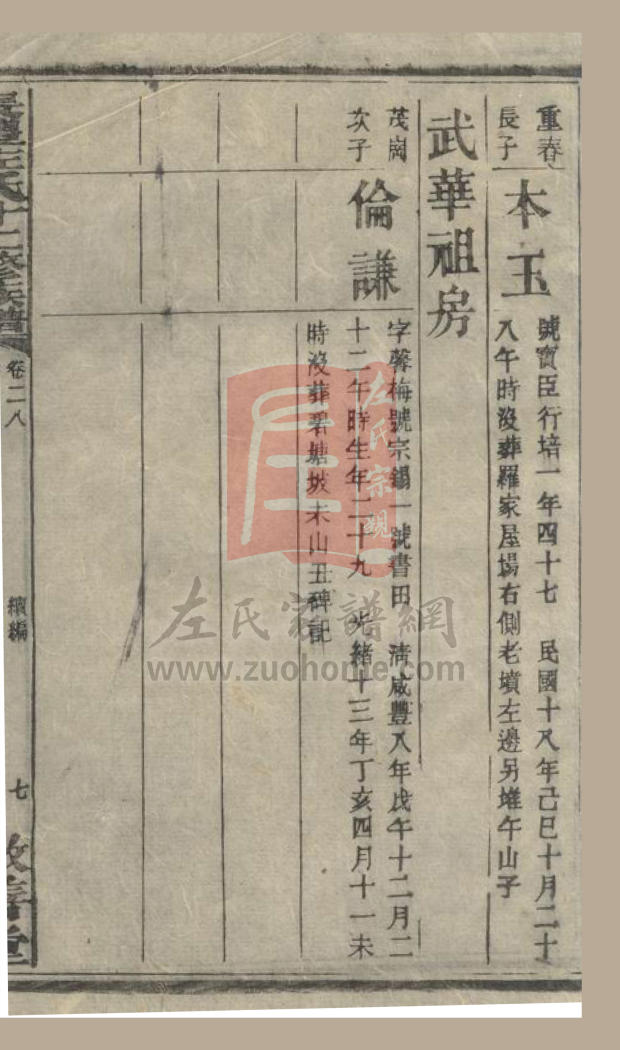 重春
長子
本玉
號寶臣行培一年四十七　民國十八年己巳十月二十
八午時沒葬羅家屋場右側老墳左邊另堆午山子
武華祖房
茂崗
次子
倫謙
字馨梅號宗錫一號書田　清咸豐八年戊午十二月二
十二午時生年二十九　光緒十三年丁亥四月十一未
時沒葬碧塘坡未山丑碑記
左氏十二修族譜
卷二八
續編
七
敦善堂
左氏宗親
左氏家譜網
www.zuohome.com